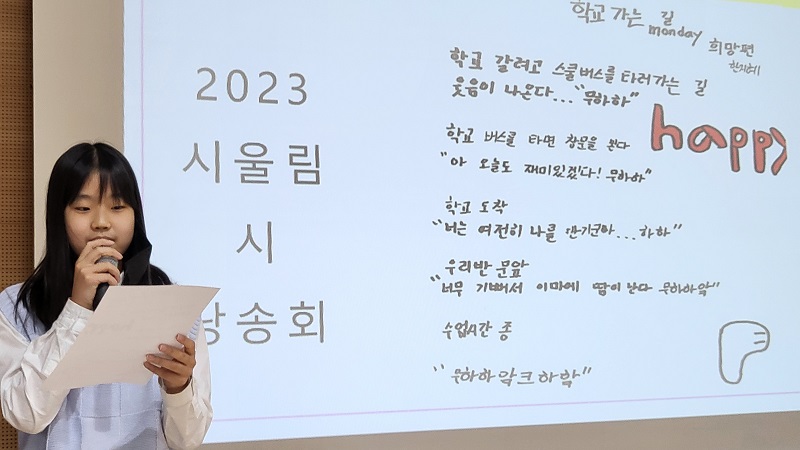 2023
시울림
시
낭송회
학교 가는 길
monday 희망편
한지혜
학교 갈려고 스쿨버스를 타러가는 길
웃음이 나온다... "무하하"
happy
학교 버스를 타면 창문을 본다
"아 오늘도 재미있겠다! 무하하"
학교 도착
"너는 여전히 나를 반기는구나...하하"
우리반 문앞
"너무 기뻐서 이마에 땀이 난다 무하하앜"
수업시간 종
"무하하 앜크하핰"